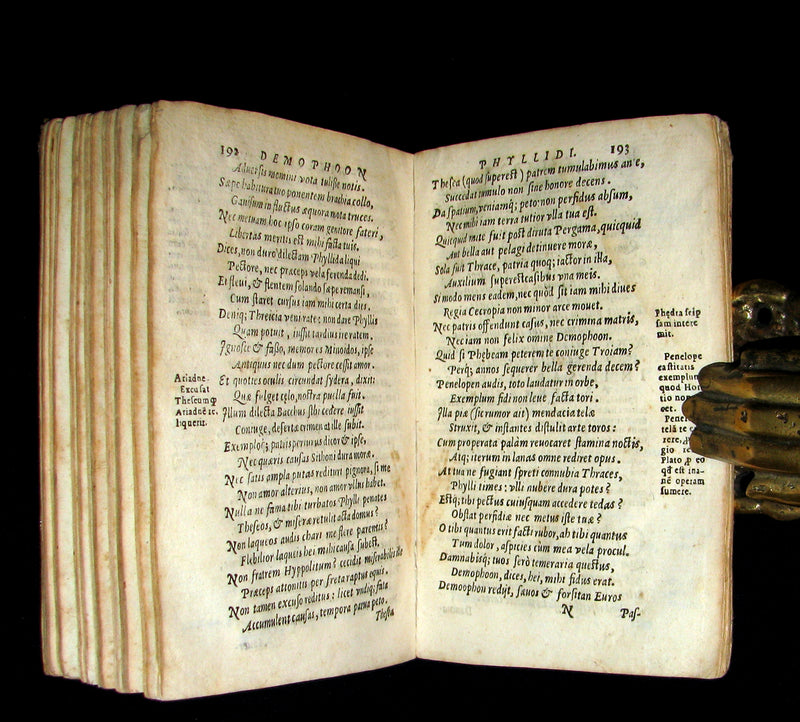 192 DEMOPHOON
Aduersis memini vota tulisse notis.
Sæpe habitura tuo ponentem brachia collo,
Gauisum in fluctus æquora nata truces.
Nec metuam hoc ipso coram genitore fateri,
Libertas meritis est mihi facta tuis.
Dices, non duro dilectam Phyllida liqui
Pectore, nec præceps vela ferenda dedi.
Et fleui, & flentem solando sæpe remansi,
Cum staret cursus iam mihi certa dies.
Deniq; Threicia veni rate: non dare Phyllis
Quam potuit, iussit tardius ire ratem.
Ignosce & fasso, memor es Minoidos, ipse
Antiquus nec dum pectore cessit amor.
Et quoties oculis circundat sydera, dixit:
Quæ fulget cælo, nostra puella fuit.
Illum dilecta Bacchus sibi cedere iussit
Coniuge, desertæ crimen at ille subit.
Exemploq; patris periurus dicor & ipse,
Nec quæris causas Sithoni dura moræ.
Nec satis ampla putas redituri pignora, si me
Non amor alterius, non amor vllus habet.
Nulla ne fama tibi turbatos Phylli penates
Theseos, & miseræ retulit acta domus?
Non laqueos audis chari me flere parentis?
Flebilior laqueis hei mihi causa subest.
Non fratrem Hyppolitum? cecidit miserabilis ille
Præceps attonitis per freta raptus equis.
Non tamen excuso reditus: licet vndiq; fata
Accumulent causas, tempora parua peto.
Thesea
Ariadne.
Excusat
Theseum ꝙ
Ariadnē re.
liquerit.
PHYLLIDI. 193
Thesea (quod superest) patrem tumulabimus ante,
Succedat tumulo non sine honore decens.
Da spatium, veniamq; peto: non perfidus absum,
Nec mihi iam terra tutior vlla tua est.
Quicquid mite fuit post diruta Pergama, quicquid
Aut bella aut pelagi detinuere moræ,
Sola fuit Thrace, patria quoq; iactor in illa,
Auxilium superest casibus vna meis.
Si modo mens eadem, nec quòd sit iam mihi diues
Regia Cecropia non minor arce mouet.
Nec patris offendunt casus, nec crimna matris,
Nec iam non felix omine Demophoon.
Quid si Phœbeam peterem te coniuge Troiam?
Perq; annos sequerer bella gerenda decem?
Penelopen audis, toto laudatur in orbe,
Exemplum fidi non leue facta tori.
Illa piæ (sic rumor ait) mendacia telæ
Struxit, & instantes distulit arte toros:
Cum properata palàm reuocaret stamina noctis,
Atq; iterum in lanas omne rediret opus.
At tua ne fugiant spreti connubia Thraces,
Phylli times: vlli nubere dura potes?
Estq; tibi pectus cuiusquam accedere tedas?
Obstat perfidiæ nec metus iste tuæ?
O tibi quantus erit facti rubor, ah tibi quantus
Tum dolor, aspicies cùm mea vela procul.
Damnabisq; tuos serò temeraria questus,
Demophoon, dices, hei, mihi fidus erat.
Demoophon redijt, sæuos & forsitan Euros
N Pas-
Phędra seip
sam intere
mit.
Penelope
castitatis
exemplum
quod Hor
tio non
cet.
Pene
telā te
rere,
gio
Plato ꝙ eo
qđ est ina-
nē operam
sumere.